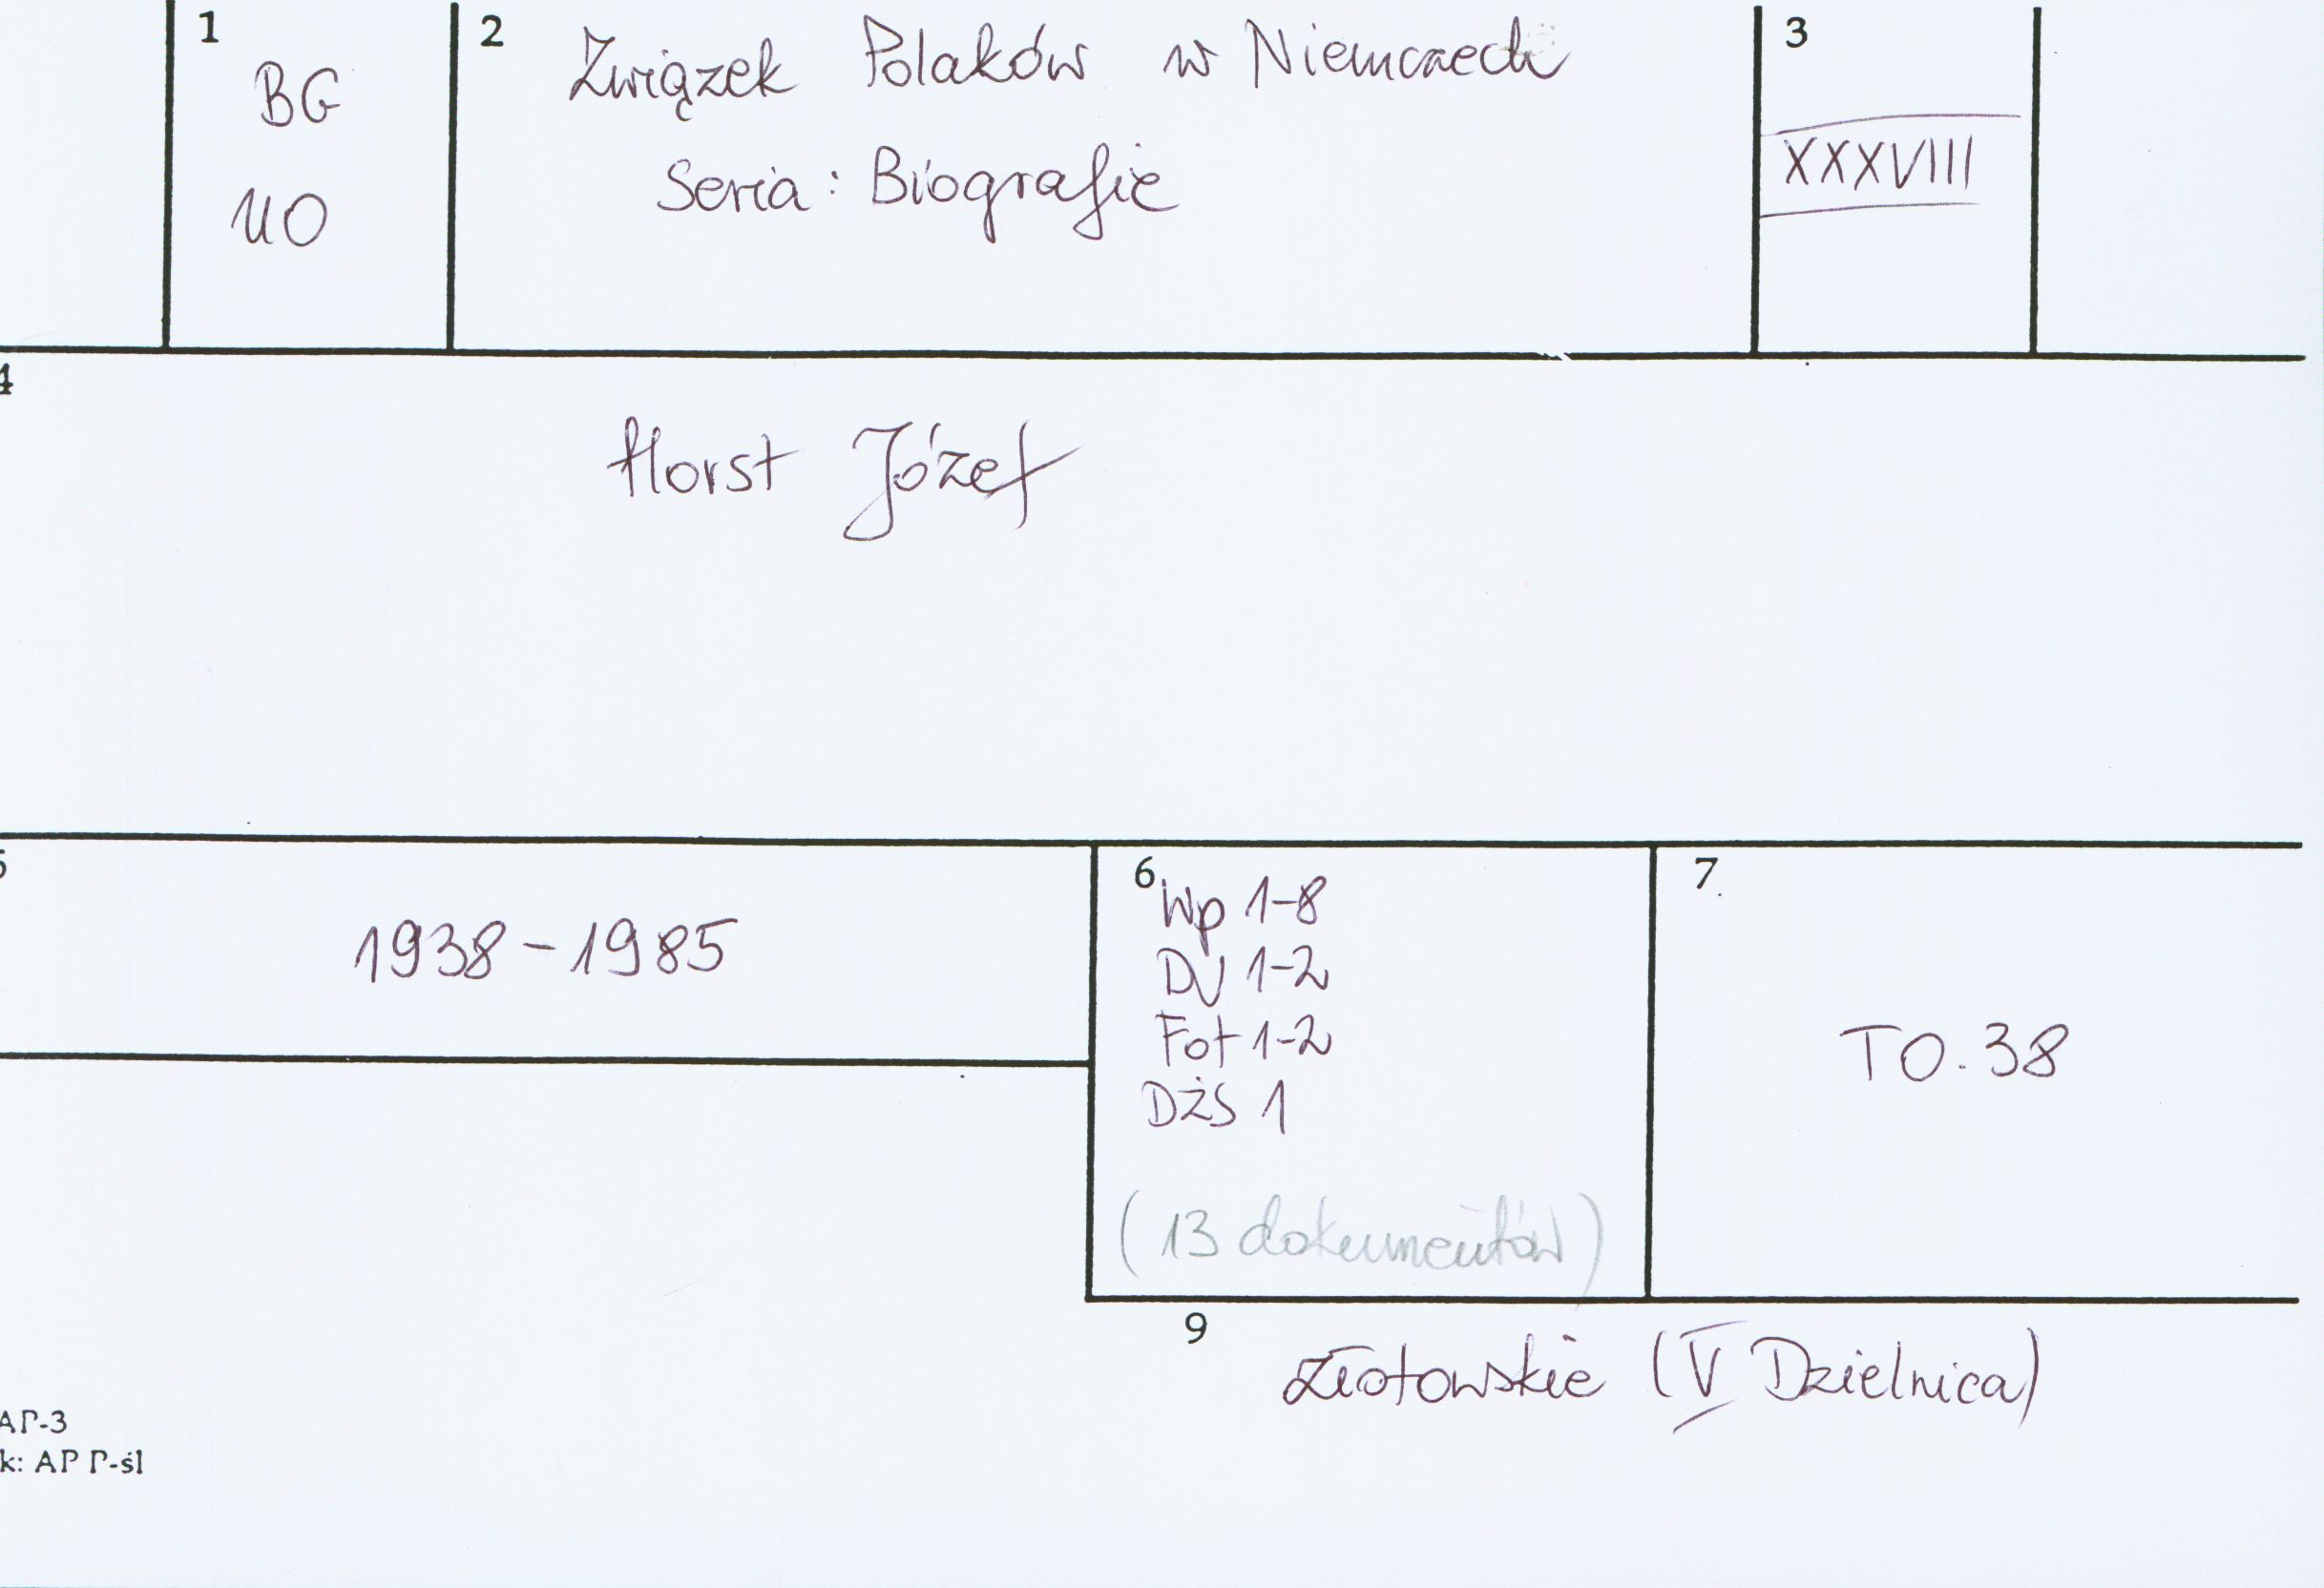 1
BG
UO
2
Związek Polaków w Niemczech
Seria: Biografie
3
XXXVIII
4
Horst Józef
5
1938-1985
6
Wp 1-8
DU 1-2
Fot 1-2
DŻS 1
(13 dokumentów)
7
TO.38
9
Złotowskie (V Dzielnica)
AP-3
k: AP P-śl